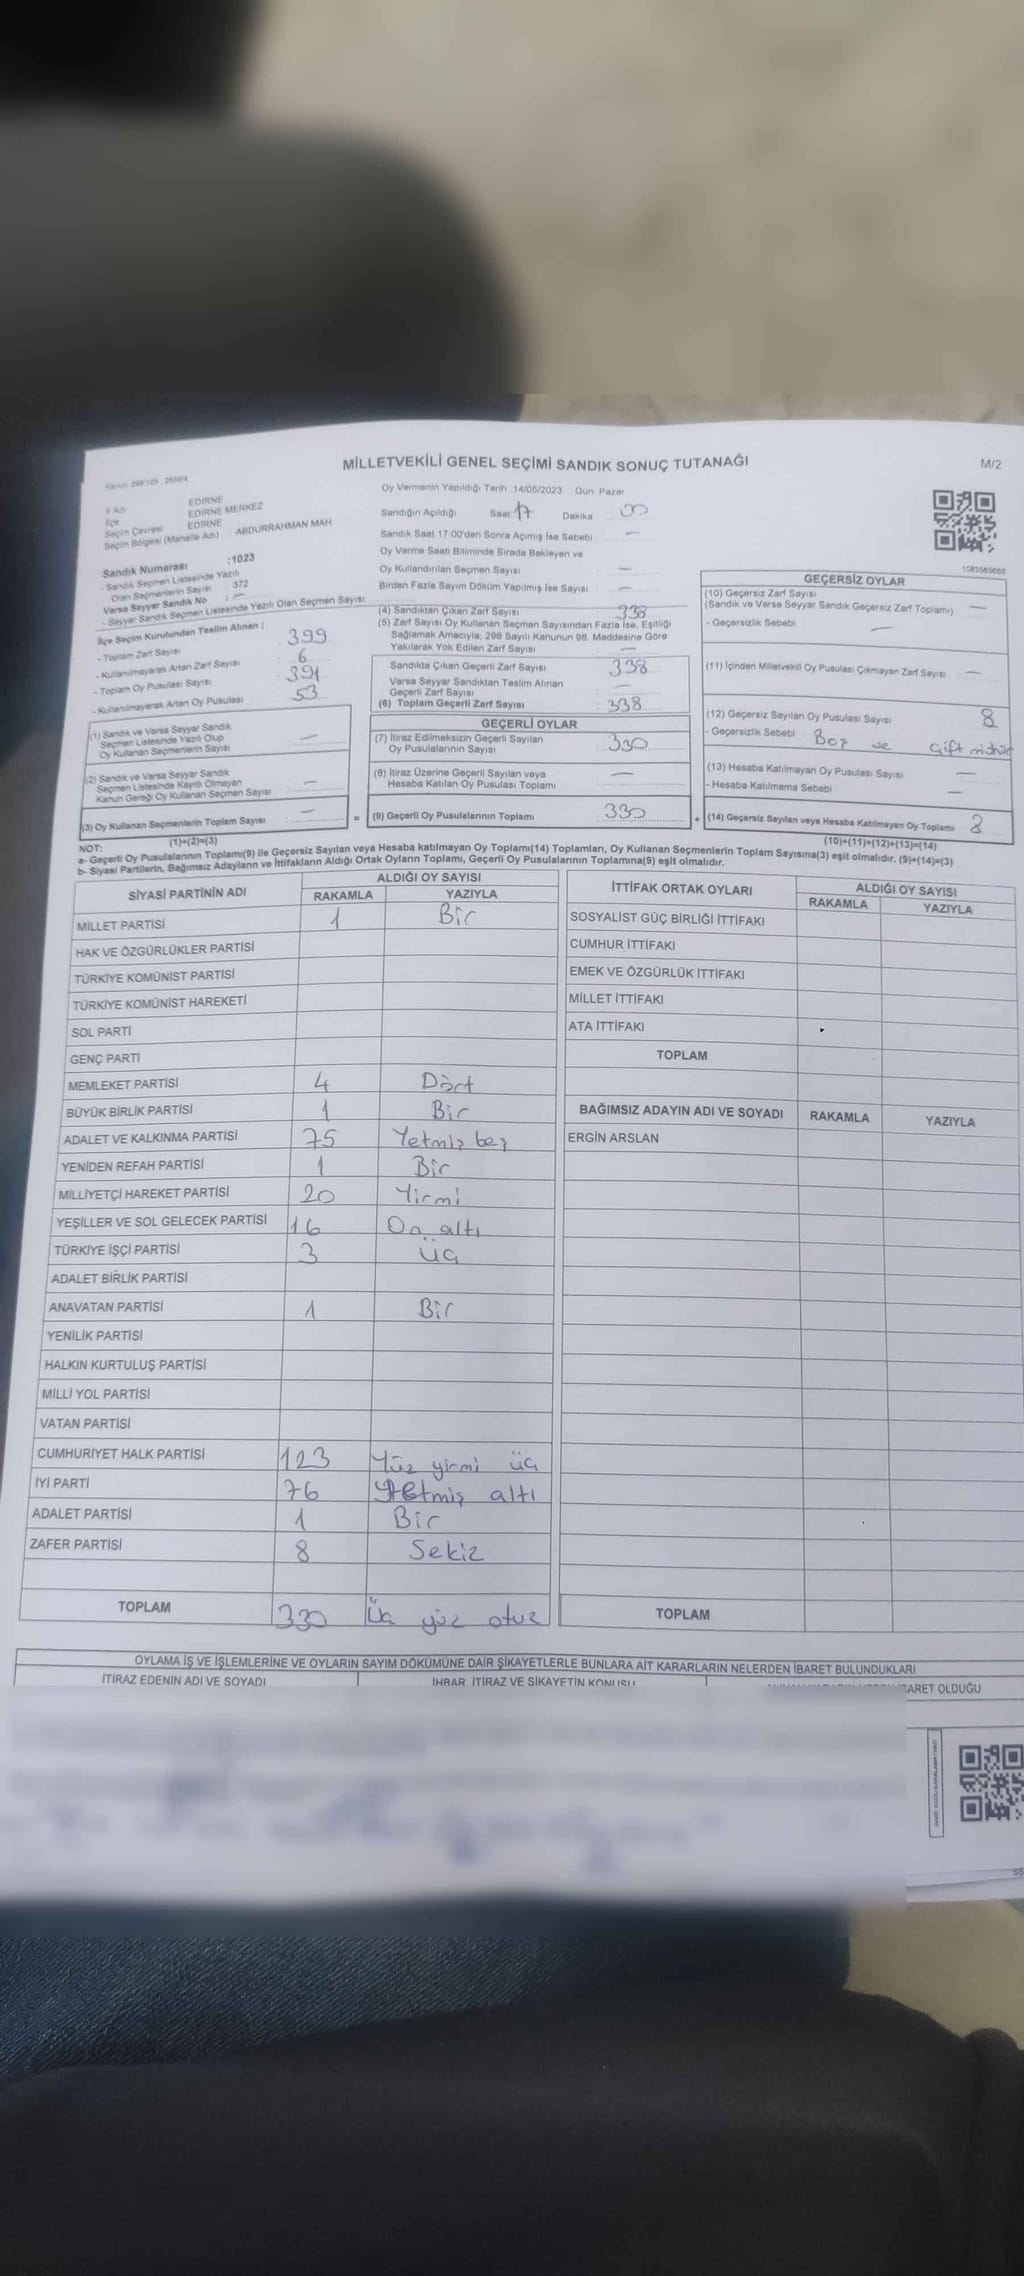 MİLLETVEKİLİ GENEL SEÇİMİ SANDIK SONUÇ TUTANAĞI
M/2
İl Adı EDİRNE
İlçe EDİRNE MERKEZ
Seçim Çevresi EDİRNE
Seçim Bölgesi (Mahalle Adı) ABDURRAHMAN MAH.
Sandık Numarası :1023
- Sandık Seçmen Listesinde Yazılı
Olan Seçmenlerin Sayısı : 372
Varsa Seyyar Sandık No : -
- Seyyar Sandık Seçmen Listesinde Yazılı Olan Seçmen Sayısı:
İlçe Seçim Kurulundan Teslim Alınan :
- Toplam Zarf Sayısı 399
- Kullanılmayarak Artan Zarf Sayısı 6
- Toplam Oy Pusulası Sayısı 391
- Kullanılmayarak Artan Oy Pusulası 53
(1) Sandık ve Varsa Seyyar Sandık
Seçmen Listesinde Yazılı Olup
Oy Kullanan Seçmenlerin Sayısı -
(2) Sandık ve Varsa Seyyar Sandık
Seçmen Listesinde Kayıtlı Olmayan
Kanun Gereği Oy Kullanan Seçmen Sayısı -
(3) Oy Kullanan Seçmenlerin Toplam Sayısı -
Oy Vermenin Yapıldığı Tarih :14/05/2023 Gün: Pazar
Sandığın Açıldığı Saat 17 Dakika 00
Sandık Saat 17:00'den Sonra Açımış İse Sebebi -
Oy Verme Saati Bitiminde Sırada Bekleyen ve
Oy Kullandırılan Seçmen Sayısı -
Birden Fazla Sayım Döküm Yapılmış İse Sayısı -
(4) Sandıktan Çıkan Zarf Sayısı 338
(5) Zarf Sayısı Oy Kullanan Seçmen Sayısından Fazla İse, Eşitliği
Sağlamak Amacıyla, 298 Sayılı Kanunun 98. Maddesine Göre
Yakılarak Yok Edilen Zarf Sayısı -
Sandıkta Çıkan Geçerli Zarf Sayısı 338
Varsa Seyyar Sandıktan Teslim Alınan
Geçerli Zarf Sayısı -
(6) Toplam Geçerli Zarf Sayısı 338
GEÇERLİ OYLAR
(7) İtiraz Edilmeksizin Geçerli Sayılan
Oy Pusulalarının Sayısı 330
(8) İtiraz Üzerine Geçerli Sayılan veya
Hesaba Katılan Oy Pusulası Toplamı -
= (9) Geçerli Oy Pusulalarının Toplamı 330
1083565658
GEÇERSİZ OYLAR
(10) Geçersiz Zarf Sayısı
(Sandık ve Varsa Seyyar Sandık Geçersiz Zarf Toplamı) -
- Geçersizlik Sebebi -
(11) İçinden Milletvekili Oy Pusulası Çıkmayan Zarf Sayısı -
(12) Geçersiz Sayılan Oy Pusulası Sayısı 8
- Geçersizlik Sebebi Boş ve çift mühür
(13) Hesaba Katılmayan Oy Pusulası Sayısı -
- Hesaba Katılmama Sebebi -
+ (14) Geçersiz Sayılan veya Hesaba Katılmayan Oy Toplamı 8
NOT: (1)+(2)=(3) (10)+(11)+(12)+(13)=(14)
a- Geçerli Oy Pusulalarının Toplamı(9) ile Geçersiz Sayılan veya Hesaba katılmayan Oy Toplamı(14) Toplamları, Oy Kullanan Seçmenlerin Toplam Sayısına(3) eşit olmalıdır. (9)+(14)=(3)
b- Siyasi Partilerin, Bağımsız Adayların ve İttifakların Aldığı Ortak Oyların Toplamı, Geçerli Oy Pusulalarının Toplamına(9) eşit olmalıdır.
SİYASİ PARTİNİN ADI ALDIĞI OY SAYISI
RAKAMLA YAZIYLA
MİLLET PARTİSİ 1 Bir
HAK VE ÖZGÜRLÜKLER PARTİSİ
TÜRKİYE KOMÜNİST PARTİSİ
TÜRKİYE KOMÜNİST HAREKETİ
SOL PARTİ
GENÇ PARTİ
MEMLEKET PARTİSİ 4 Dört
BÜYÜK BİRLİK PARTİSİ 1 Bir
ADALET VE KALKINMA PARTİSİ 75 Yetmiş beş
YENİDEN REFAH PARTİSİ 1 Bir
MİLLİYETÇİ HAREKET PARTİSİ 20 Yirmi
YEŞİLLER VE SOL GELECEK PARTİSİ 16 On altı
TÜRKİYE İŞÇİ PARTİSİ 3 Üç
ADALET BİRLİK PARTİSİ
ANAVATAN PARTİSİ 1 Bir
YENİLİK PARTİSİ
HALKIN KURTULUŞ PARTİSİ
MİLLİ YOL PARTİSİ
VATAN PARTİSİ
CUMHURİYET HALK PARTİSİ 123 Yüz yirmi üç
İYİ PARTİ 76 Yetmiş altı
ADALET PARTİSİ 1 Bir
ZAFER PARTİSİ 8 Sekiz
TOPLAM 330 Üç yüz otuz
İTTİFAK ORTAK OYLARI ALDIĞI OY SAYISI
RAKAMLA YAZIYLA
SOSYALİST GÜÇ BİRLİĞİ İTTİFAKI
CUMHUR İTTİFAKI
EMEK VE ÖZGÜRLÜK İTTİFAKI
MİLLET İTTİFAKI
ATA İTTİFAKI
TOPLAM
BAĞIMSIZ ADAYIN ADI VE SOYADI RAKAMLA YAZIYLA
ERGİN ARSLAN
TOPLAM
OYLAMA İŞ VE İŞLEMLERİNE VE OYLARIN SAYIM DÖKÜMÜNE DAİR ŞİKAYETLERLE BUNLARA AİT KARARLARIN NELERDEN İBARET BULUNDUKLARI
İTİRAZ EDENİN ADI VE SOYADI İHBAR, İTİRAZ VE ŞİKAYETİN KONUSU BARET OLDUĞU